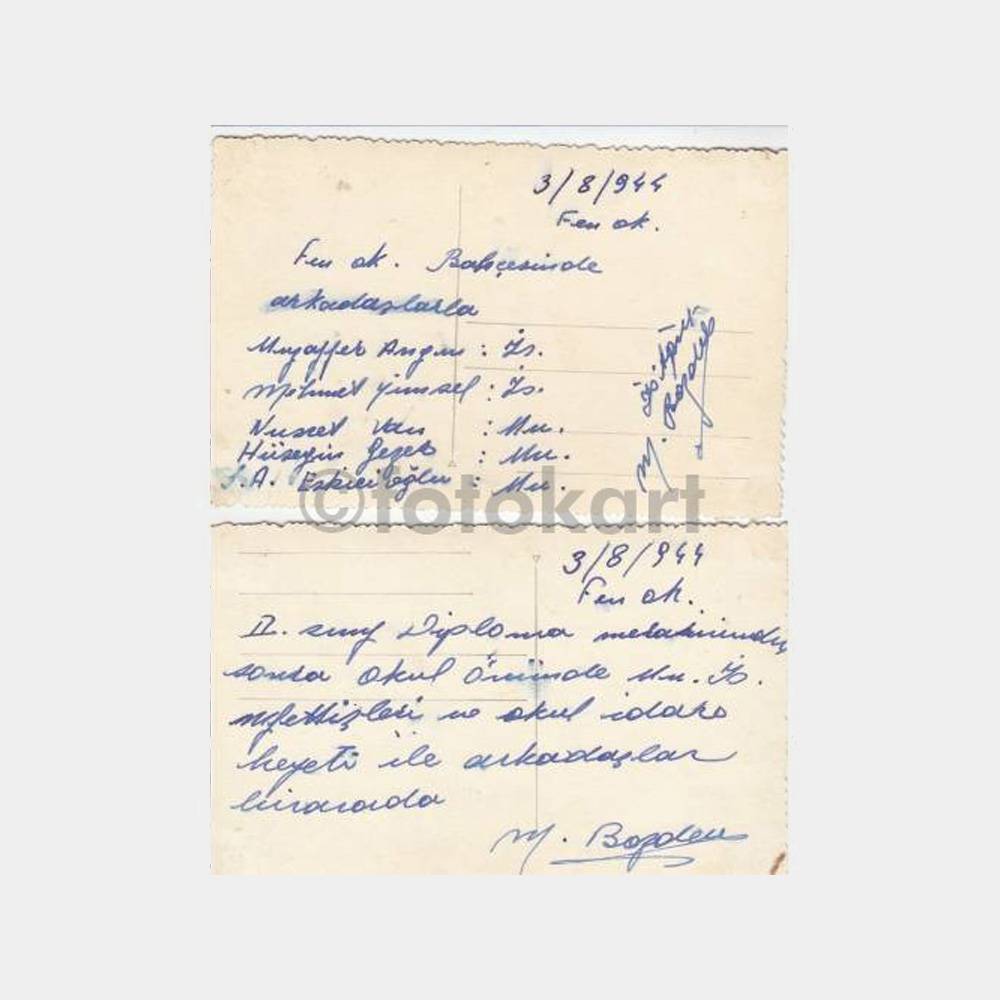 3/8/944
Fen ok.
Fen ok. Bahçesinde
arkadaşlarla
Muzaffer Angın : İs.
Mehmet : İs.
Nusret Van : Mu.
Hüseyin Gezer : Mu.
A. Eskicioğlu : Mu.
M. Bozdel
©fotokart
3/8/944
Fen ok.
II. sınıf Diploma merasiminden
sonra okul önünde Mu. İs.
müfettişleri ve okul idare
heyeti ile arkadaşlar
birarada
M. Bozdeu